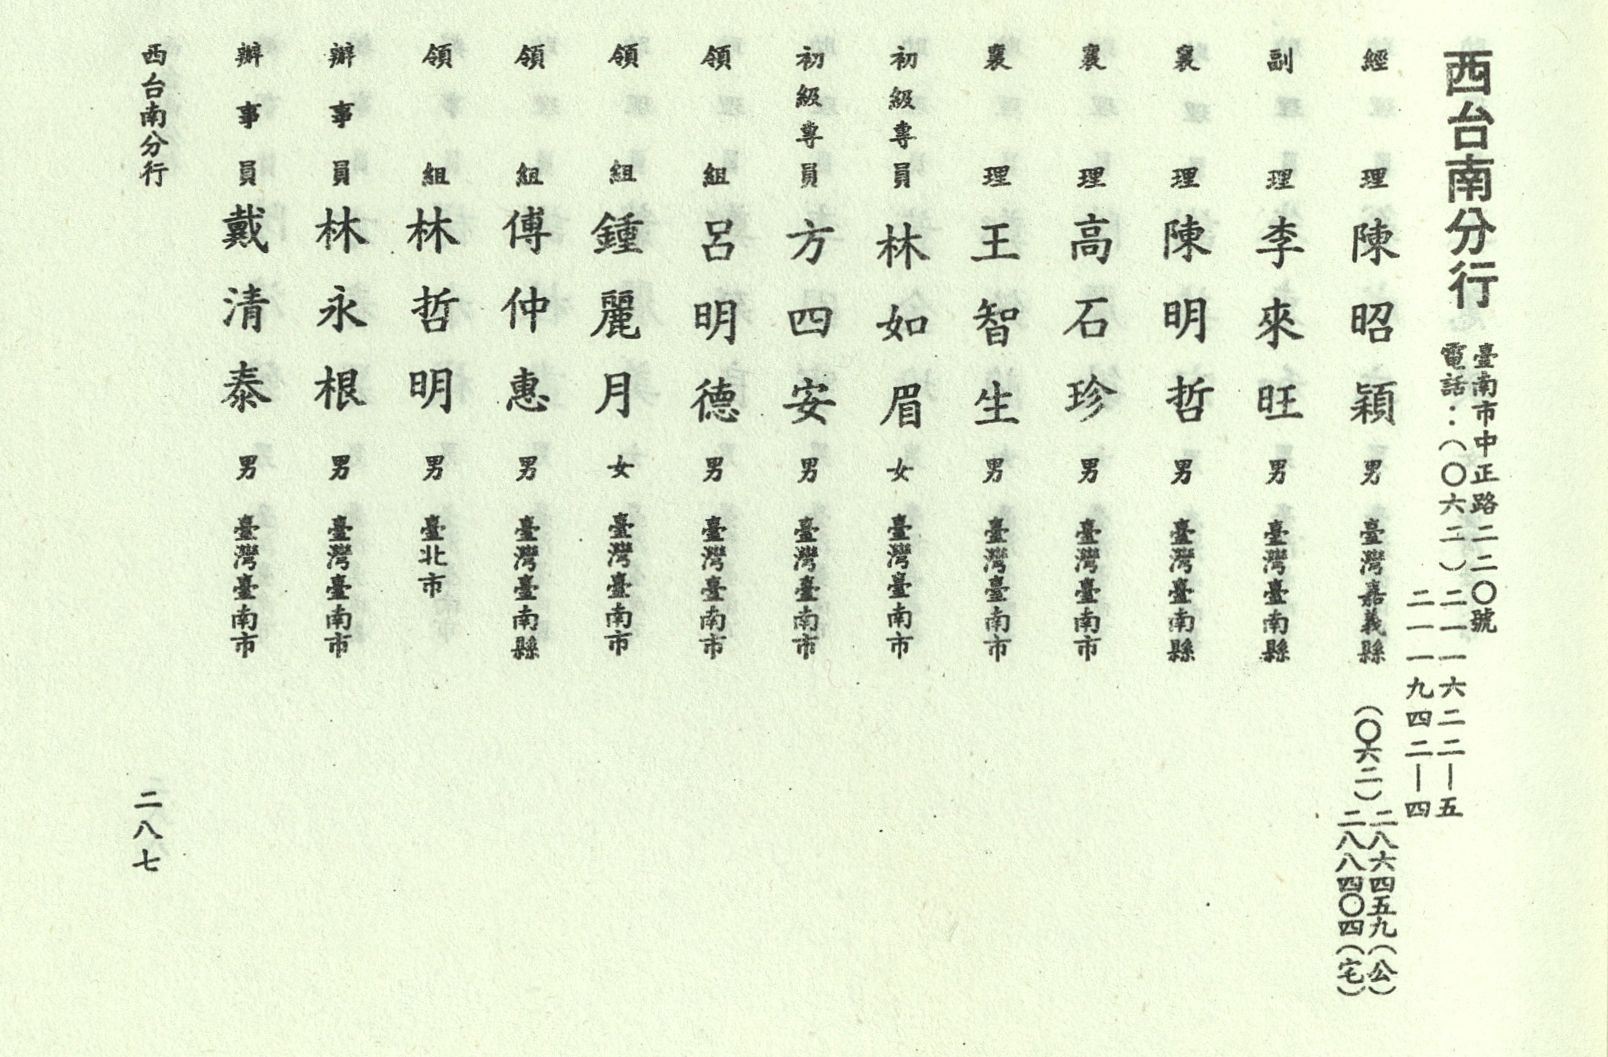 西台南分行
臺南市中正路二二〇號
電話：（〇六二）二一一六二二—五
二一一九四二—四
經理 陳昭穎 男 臺灣嘉義縣 （〇六二）二八六四五九（公）
二八八四〇四（宅）
副理 李來旺 男 臺灣臺南縣
襄理 陳明哲 男 臺灣臺南縣
襄理 高石珍 男 臺灣臺南市
襄理 王智生 男 臺灣臺南市
初級專員 林如眉 女 臺灣臺南市
初級專員 方四安 男 臺灣臺南市
領組 呂明德 男 臺灣臺南市
領組 鍾麗月 女 臺灣臺南市
領組 傅仲惠 男 臺灣臺南縣
領組 林哲明 男 臺北市
辦事員 林永根 男 臺灣臺南市
辦事員 戴清泰 男 臺灣臺南市
西台南分行
二八七